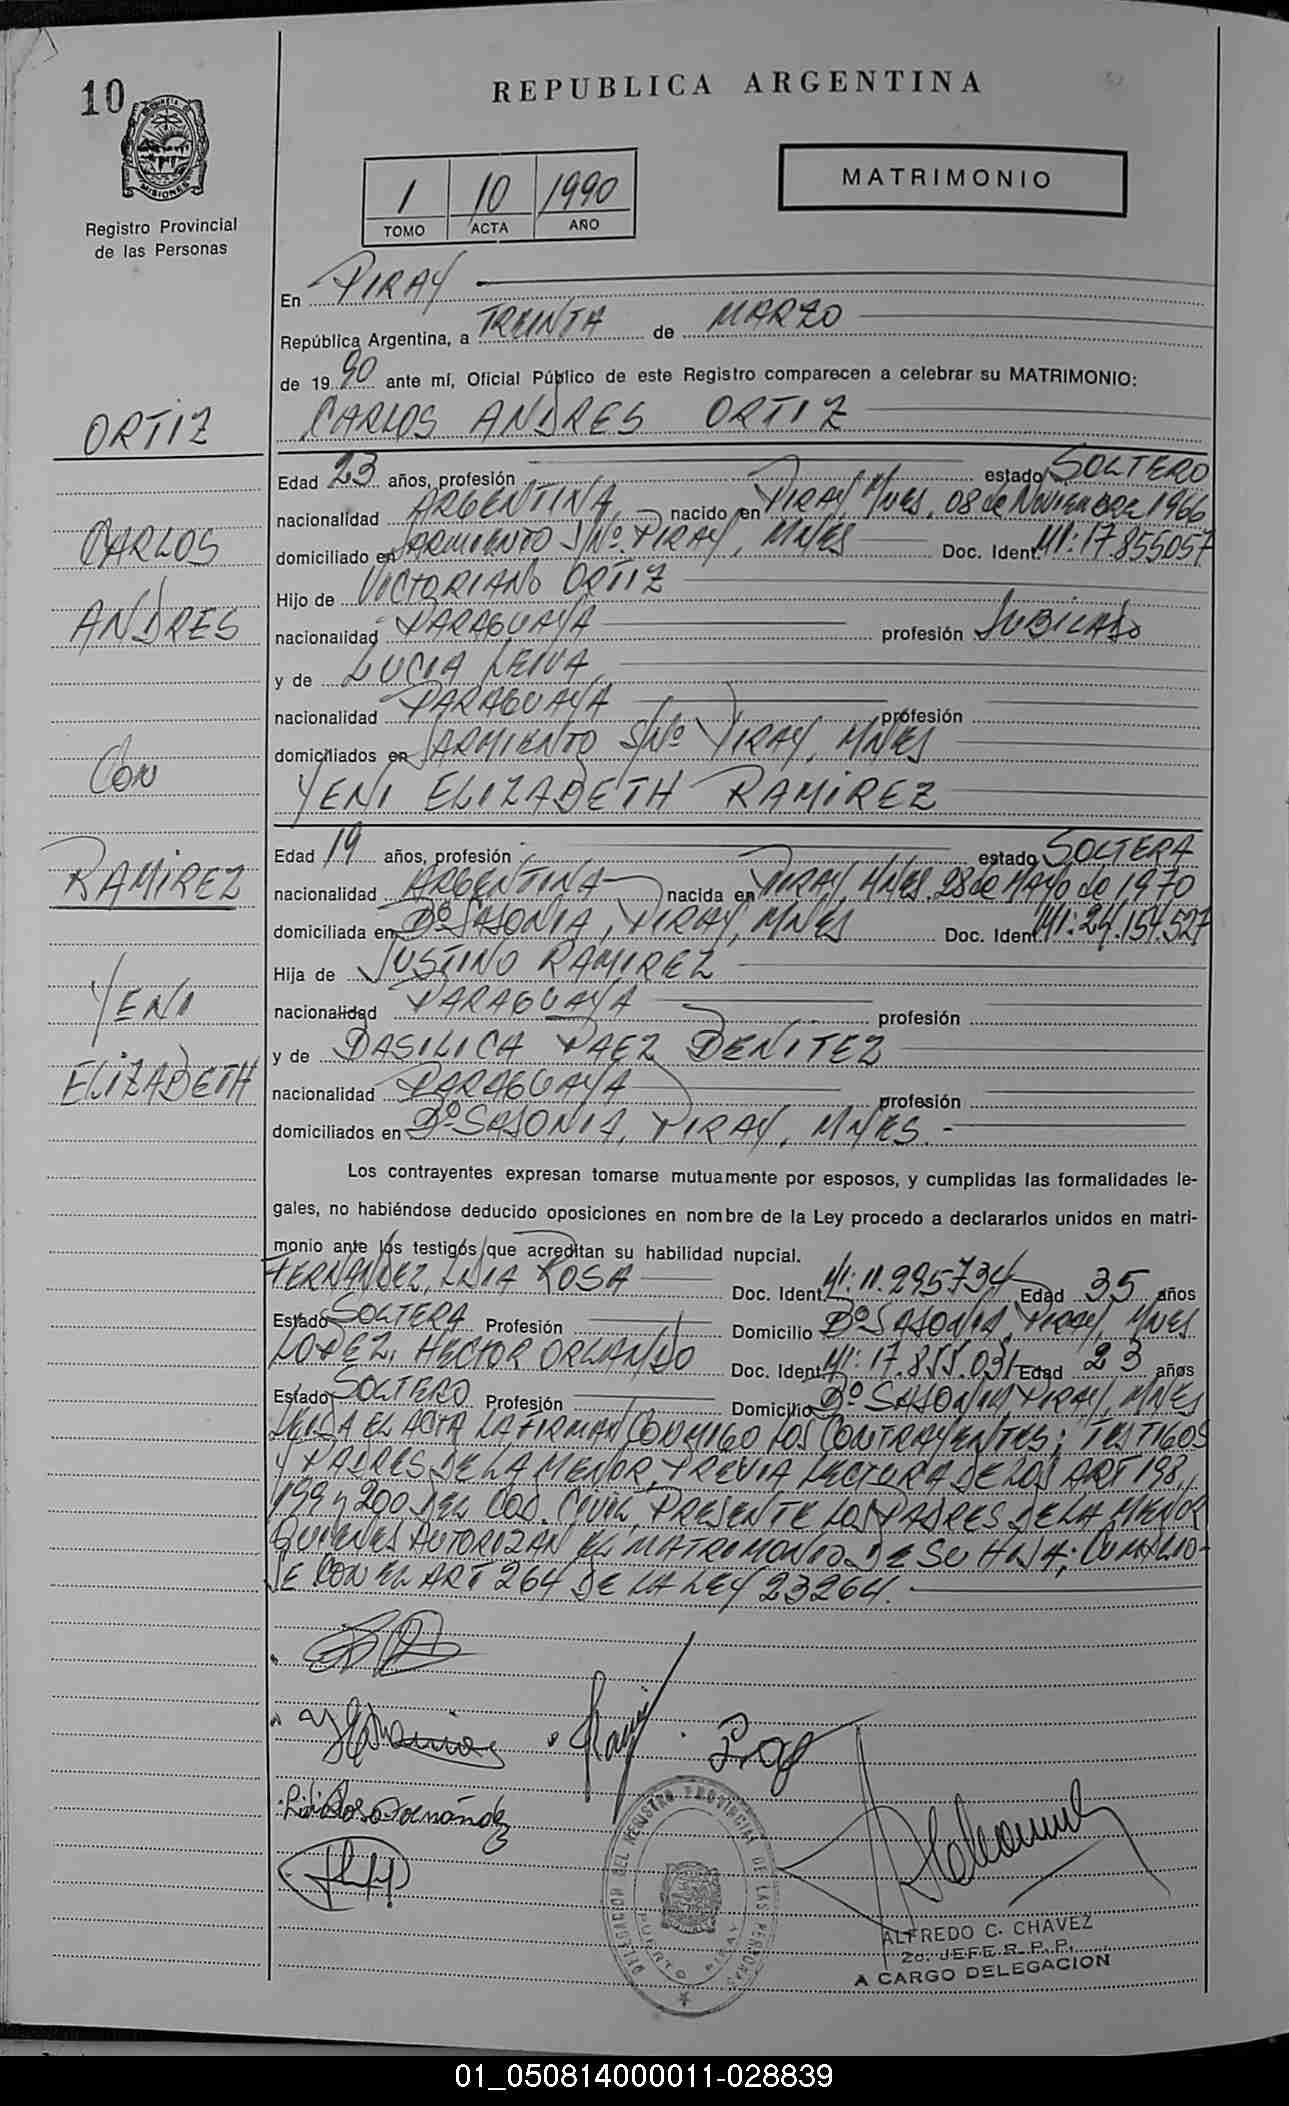 10
REPUBLICA ARGENTINA
MISIONES
Registro Provincial
de las Personas
1 10 1990
TOMO ACTA AÑO
MATRIMONIO
En PIRAY
República Argentina, a TREINTA de MARZO
de 1990 ante mí, Oficial Público de este Registro comparecen a celebrar su MATRIMONIO:
CARLOS ANDRES ORTIZ
ORTIZ
CARLOS
ANDRES
CON
RAMIREZ
YENI
ELIZABETH
Edad 23 años, profesión estado SOLTERO
nacionalidad ARGENTINA, nacido en PIRAY, Mnes, 08 de NOVIEMBRE 1966
domiciliado en SARMIENTO S/Nº. PIRAY, MNES Doc. Ident. MI: 17.855057
Hijo de VICTORIANO ORTIZ
nacionalidad PARAGUAYA profesión JUBILADO
y de LUCIA LEIVA
nacionalidad PARAGUAYA profesión
domiciliados en SARMIENTO S/Nº PIRAY, MNES
YENI ELIZABETH RAMIREZ
Edad 19 años, profesión estado SOLTERA
nacionalidad ARGENTINA nacida en PIRAY, MNES, 28 de MAYO de 1970
domiciliada en Bº SAJONIA, PIRAY, MNES Doc. Ident. MI: 24.154.527
Hija de JUSTINO RAMIREZ
nacionalidad PARAGUAYA profesión
y de BASILICA PAEZ BENITEZ
nacionalidad PARAGUAYA profesión
domiciliados en Bº SAJONIA, PIRAY, MNES.-
Los contrayentes expresan tomarse mutuamente por esposos, y cumplidas las formalidades le-
gales, no habiéndose deducido oposiciones en nombre de la Ley procedo a declararlos unidos en matri-
monio ante los testigos que acreditan su habilidad nupcial.
FERNANDEZ, ROSA Doc. Ident. MI: 11.295734 Edad 35 años
Estado SOLTERA Profesión Domicilio Bº SAJONIA, PIRAY, MNES
LOPEZ, HECTOR ORLANDO Doc. Ident. MI: 17.855.031 Edad 23 años
Estado SOLTERO Profesión Domicilio Bº SAJONIA PIRAY, MNES
LEIDA EL ACTA LA FIRMAN CONMIGO LOS CONTRAYENTES; TESTIGOS
Y PADRES DE LA MENOR, PREVIA LECTURA DE LOS ART 198,
199 y 200 DEL COD. CIVIL, PRESENTE LOS PADRES DE LA MENOR
QUIENES AUTORIZAN EL MATRIMONIO DE SU HIJA; CUMPLIO-
SE CON EL ART 264 DE LA LEY 23264.
DELEGACION DEL REGISTRO PROVINCIAL DE LAS PERSONAS
PUERTO PIRAY
ALFREDO C. CHAVEZ
2o. JEFE R. P. P.
A CARGO DELEGACION
01_050814000011-028839